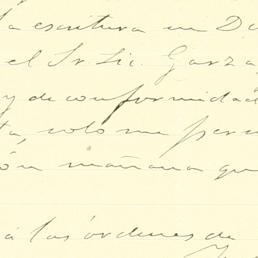 la escritura en Du
el Sr. Lic. Garza
y de conformidad
ta, solo me perm
ón mañana que
á las órdenes de